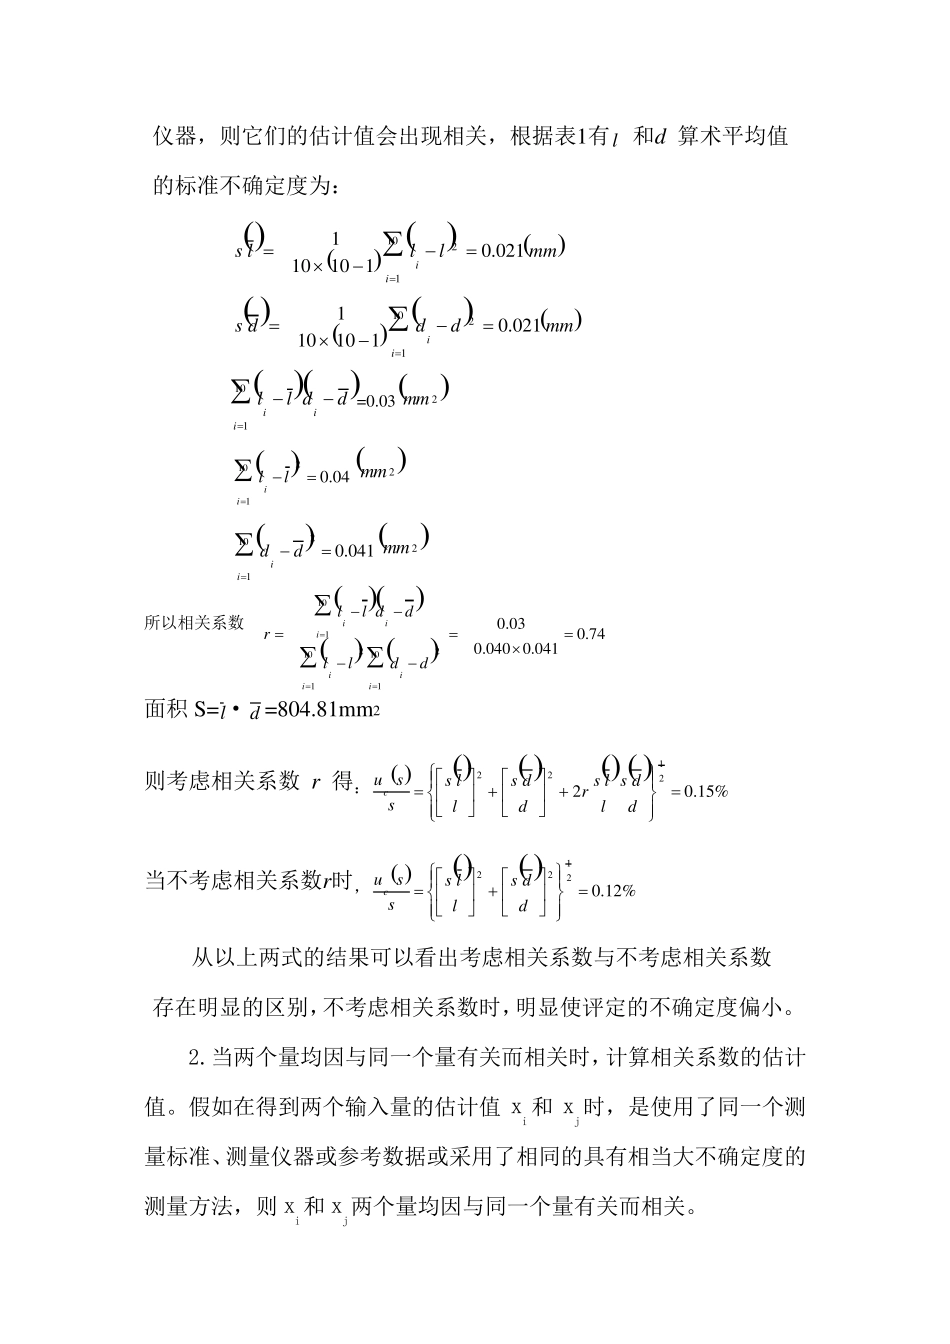 仪器，则它们的估计值会出现相关，根据表1有 l 和d 算术平均值
的标准不确定度为：
s(l̅)= 1 / 10×(10−1) ∑_{i=1}^{10} (l_i − l)^2 = 0.021(mm)
s(d̅)= 1 / 10×(10−1) ∑_{i=1}^{10} (d_i − d)^2 = 0.021(mm)
∑_{i=1}^{10} (l_i − l̅)(d_i − d̅)=0.03(mm^2)
∑_{i=1}^{10} (l_i − l̅) = 0.04 (mm^2)
∑_{i=1}^{10} (d_i − d̅) = 0.041 (mm^2)
所以相关系数 r = ∑_{i=1}^{10} (l_i − l̅)(d_i − d̅) / ∑_{i=1}^{10} (l_i − l) ∑_{i=1}^{10} (d_i − d) = 0.03 / 0.040×0.041 = 0.74
面积 S=l̅・d̅=804.81mm2
则考虑相关系数 r 得：u_c(s) / s = {[s(l̅) / l]^2 + [s(d̅) / d]^2 + 2r s(l̅) / l s(d̅) / d}^{1/2} = 0.15%
当不考虑相关系数r时，u_c(s) / s = {[s(l̅) / l]^2 + [s(d̅) / d]^2}^{1/2} = 0.12%
从以上两式的结果可以看出考虑相关系数与不考虑相关系数
存在明显的区别，不考虑相关系数时，明显使评定的不确定度偏小。
2.当两个量均因与同一个量有关而相关时，计算相关系数的估计
值。假如在得到两个输入量的估计值 x_i 和 x_j 时，是使用了同一个测
量标准、测量仪器或参考数据或采用了相同的具有相当大不确定度的
测量方法，则 x_i 和 x_j 两个量均因与同一个量有关而相关。